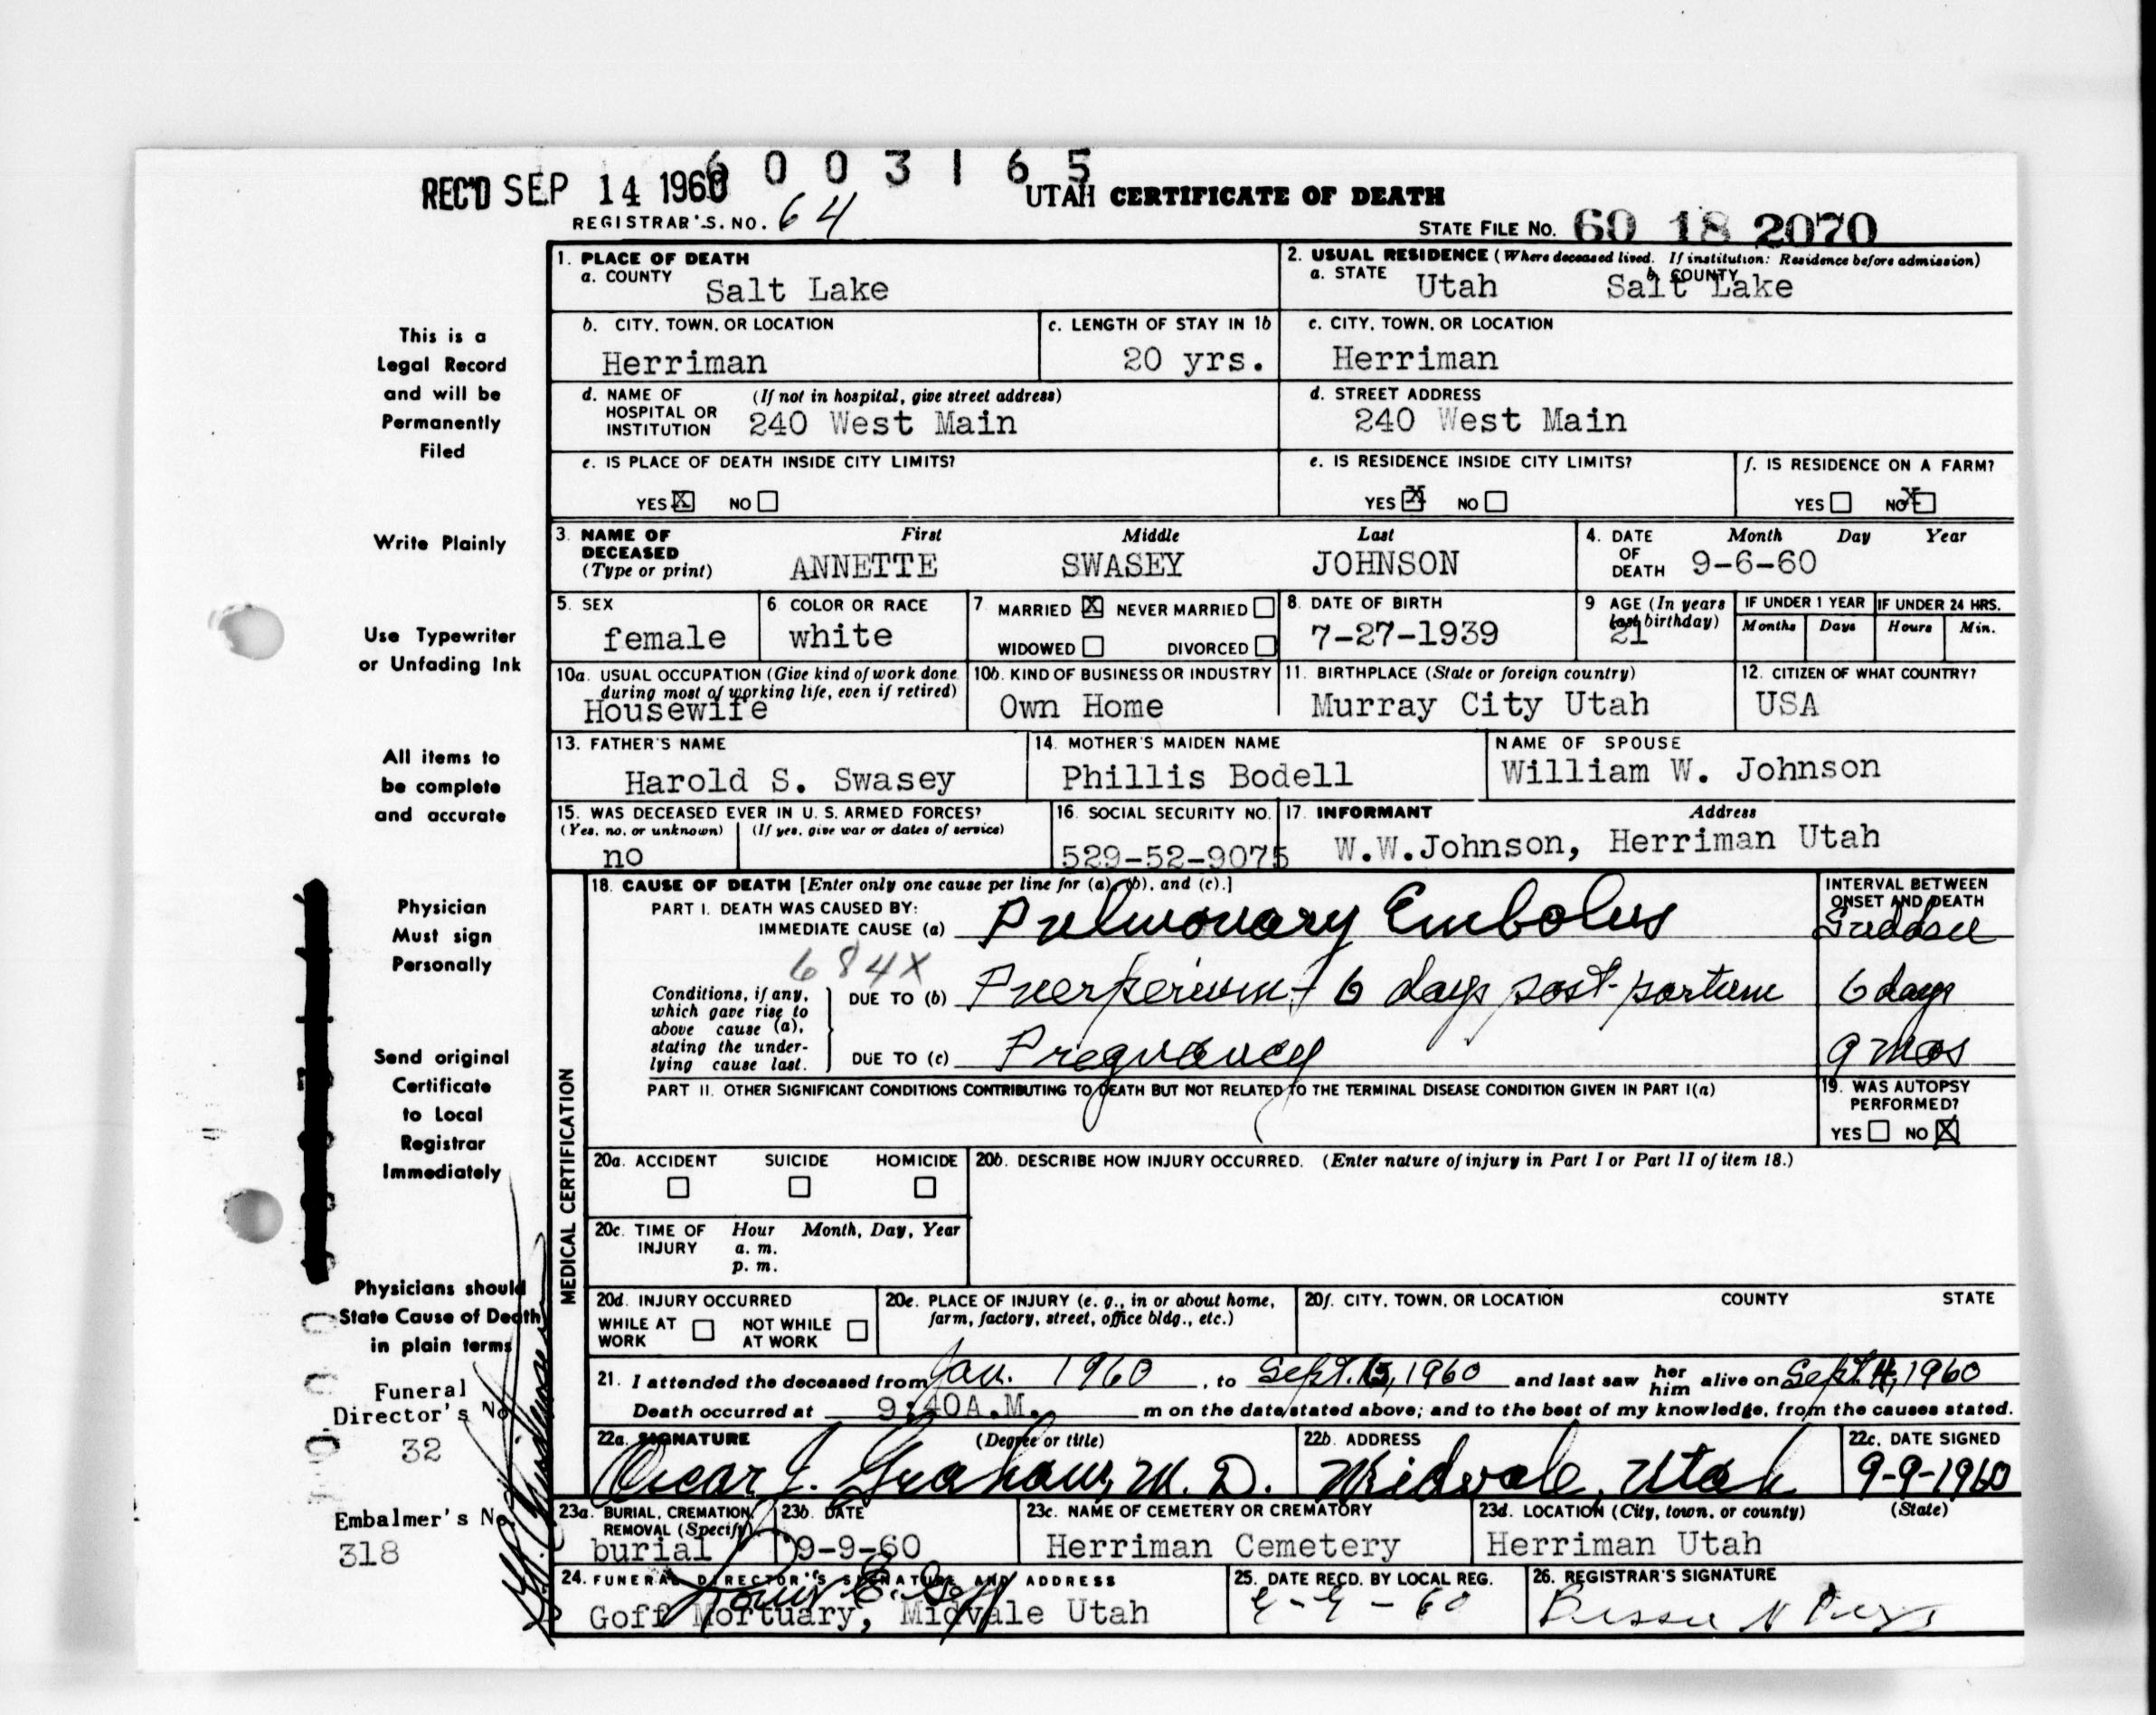 6 0 0 3 1 6 5
REC'D SEP 14 1960
UTAH CERTIFICATE OF DEATH
REGISTRAR'S. NO. 64
STATE FILE No. 60 18 2070
This is a
Legal Record
and will be
Permanently
Filed
Write Plainly
Use Typewriter
or Unfading Ink
All items to
be complete
and accurate
Physician
Must sign
Personally
Send original
Certificate
to Local
Registrar
Immediately
Physicians should
State Cause of Death
in plain terms
Funeral
Director's No
32
Embalmer's No.
318
1. PLACE OF DEATH
a. COUNTY Salt Lake
2. USUAL RESIDENCE (Where deceased lived. If institution: Residence before admission)
a. STATE Utah b. COUNTY Salt Lake
b. CITY, TOWN, OR LOCATION
Herriman
c. LENGTH OF STAY IN 1b
20 yrs.
c. CITY, TOWN, OR LOCATION
Herriman
d. NAME OF HOSPITAL OR INSTITUTION (If not in hospital, give street address)
240 West Main
d. STREET ADDRESS
240 West Main
e. IS PLACE OF DEATH INSIDE CITY LIMITS?
YES X NO
e. IS RESIDENCE INSIDE CITY LIMITS?
YES X NO
f. IS RESIDENCE ON A FARM?
YES NO X
3. NAME OF DECEASED (Type or print) First Middle Last
ANNETTE SWASEY JOHNSON
4. DATE OF DEATH Month Day Year
9-6-60
5. SEX
female
6. COLOR OR RACE
white
7. MARRIED X NEVER MARRIED
WIDOWED DIVORCED
8. DATE OF BIRTH
7-27-1939
9 AGE (In years last birthday)
21
IF UNDER 1 YEAR IF UNDER 24 HRS.
Months Days Hours Min.
10a. USUAL OCCUPATION (Give kind of work done during most of working life, even if retired)
Housewife
10b. KIND OF BUSINESS OR INDUSTRY
Own Home
11. BIRTHPLACE (State or foreign country)
Murray City Utah
12. CITIZEN OF WHAT COUNTRY?
USA
13. FATHER'S NAME
Harold S. Swasey
14. MOTHER'S MAIDEN NAME
Phillis Bodell
NAME OF SPOUSE
William W. Johnson
15. WAS DECEASED EVER IN U. S. ARMED FORCES?
(Yes, no, or unknown) (If yes, give war or dates of service)
no
16. SOCIAL SECURITY NO.
529-52-9075
17. INFORMANT Address
W.W.Johnson, Herriman Utah
MEDICAL CERTIFICATION
18. CAUSE OF DEATH [Enter only one cause per line for (a), (b), and (c).]
INTERVAL BETWEEN ONSET AND DEATH
PART I. DEATH WAS CAUSED BY:
IMMEDIATE CAUSE (a) Pulmonary Embolus
684X
Conditions, if any, which gave rise to above cause (a), stating the underlying cause last.
DUE TO (b) Puerperium - 6 days post-partum 6 days
DUE TO (c) Pregnancy 9 mos
PART II. OTHER SIGNIFICANT CONDITIONS CONTRIBUTING TO DEATH BUT NOT RELATED TO THE TERMINAL DISEASE CONDITION GIVEN IN PART I(a)
19. WAS AUTOPSY PERFORMED?
YES NO X
20a. ACCIDENT SUICIDE HOMICIDE
20b. DESCRIBE HOW INJURY OCCURRED. (Enter nature of injury in Part I or Part II of item 18.)
20c. TIME OF INJURY Hour Month, Day, Year
a. m.
p. m.
20d. INJURY OCCURRED
WHILE AT WORK NOT WHILE AT WORK
20e. PLACE OF INJURY (e. g., in or about home, farm, factory, street, office bldg., etc.)
20f. CITY, TOWN, OR LOCATION COUNTY STATE
21. I attended the deceased from Jan. 1960, to Sept. 1960 and last saw her him alive on Sept. 4, 1960
Death occurred at 9:40A.M. m on the date stated above; and to the best of my knowledge, from the causes stated.
22a. SIGNATURE (Degree or title)
Oscar J. Graham, M. D.
22b. ADDRESS
Midvale, Utah
22c. DATE SIGNED
9-9-1960
23a. BURIAL, CREMATION, REMOVAL (Specify)
burial
23b. DATE
9-9-60
23c. NAME OF CEMETERY OR CREMATORY
Herriman Cemetery
23d. LOCATION (City, town, or county) (State)
Herriman Utah
24. FUNERAL DIRECTOR'S SIGNATURE AND ADDRESS
Goff Mortuary, Midvale Utah
25. DATE RECD. BY LOCAL REG.
9-9-60
26. REGISTRAR'S SIGNATURE